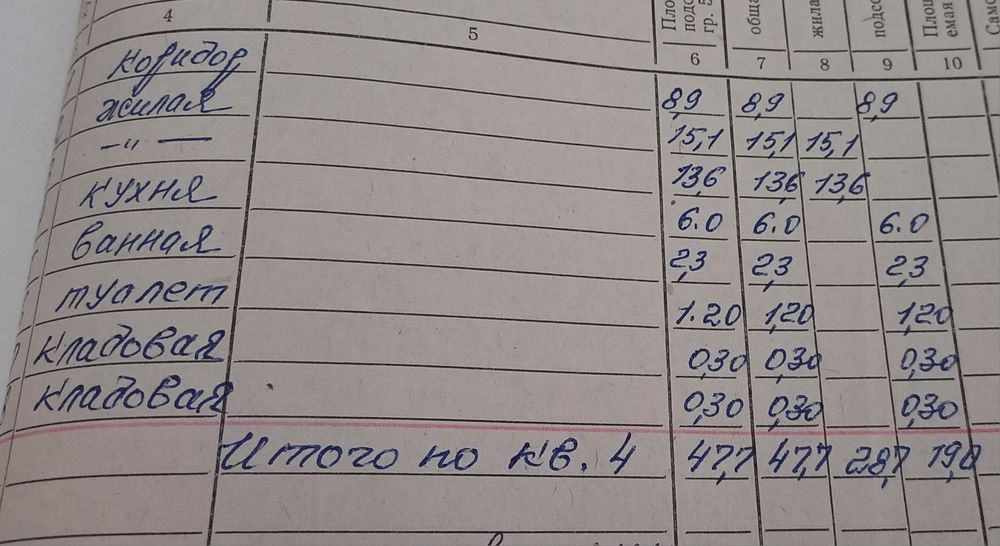 Пло подс гр. 5 обща жила подсо Площ емая Само
4 5 6 7 8 9 10
коридор 8,9 8,9 8,9
жилая 15,1 15,1 15,1
—"— 13,6 13,6 13,6
кухня 6.0 6.0 6.0
ванная 2,3 2,3 2,3
туалет 1.20 1,20 1,20
кладовая 0,30 0,30 0,30
кладовая 0,30 0,30 0,30
Итого по кв. 4 47,7 47,7 28,7 19,0